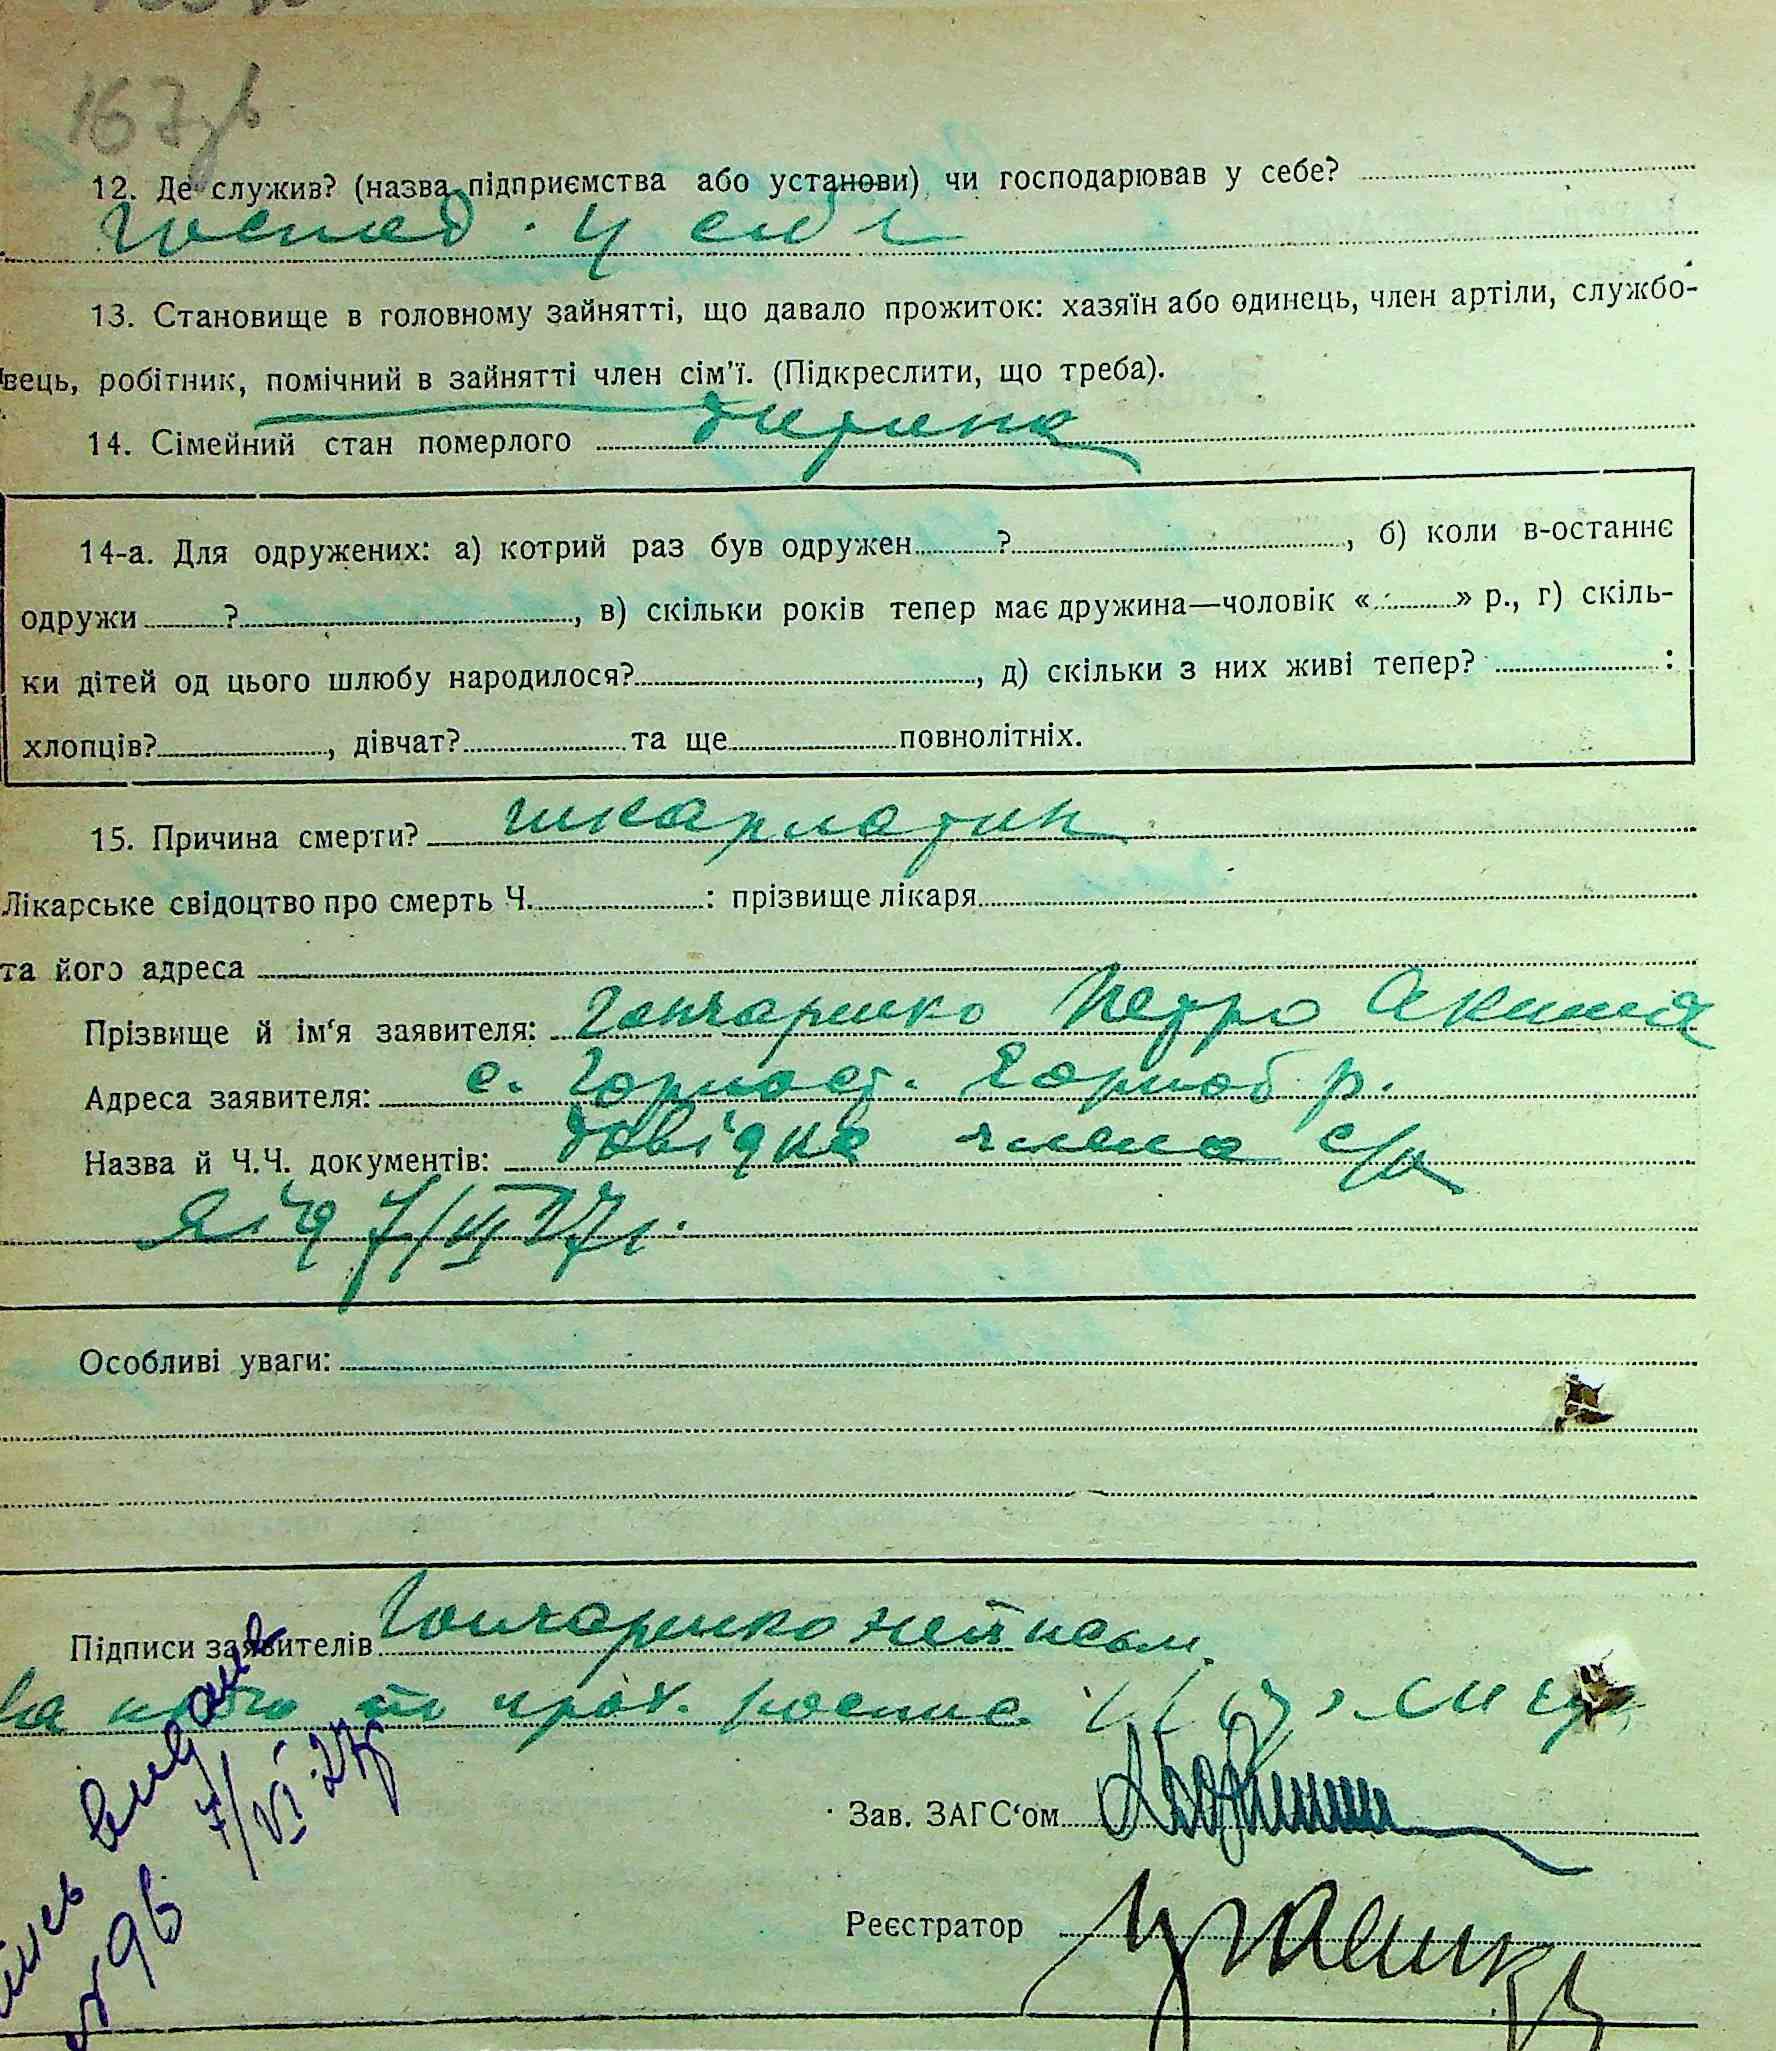 167зв
12. Де служив? (назва підприємства або установи) чи господарював у себе?
господ. у себе
13. Становище в головному зайнятті, що давало прожиток: хазяїн або одинець, член артіли, службо-
вець, робітник, помічний в зайнятті член сім'ї. (Підкреслити, що треба).
14. Сімейний стан померлого дитина
14-а. Для одружених: а) котрий раз був одружен ? , б) коли в-останнє
одружи ? , в) скільки років тепер має дружина—чоловік « » р., г) скіль-
ки дітей од цього шлюбу народилося? , д) скільки з них живі тепер? :
хлопців? , дівчат? та ще повнолітніх.
15. Причина смерти? шкарлатин
Лікарське свідоцтво про смерть Ч. : прізвище лікаря
та його адреса
Прізвище й ім'я заявителя: Гончаренко Петро Акимов
Адреса заявителя: с. Горност. Чорноб. р.
Назва й Ч.Ч. документів: довідка члена с/р
від 7/VI 27 г.
Особливі уваги:
Підписи заявителів Гончаренко неписьм.
За його прох. роспис.
видане
7/VI 27р
Зав. ЗАГС'ом
№ 96
Реєстратор